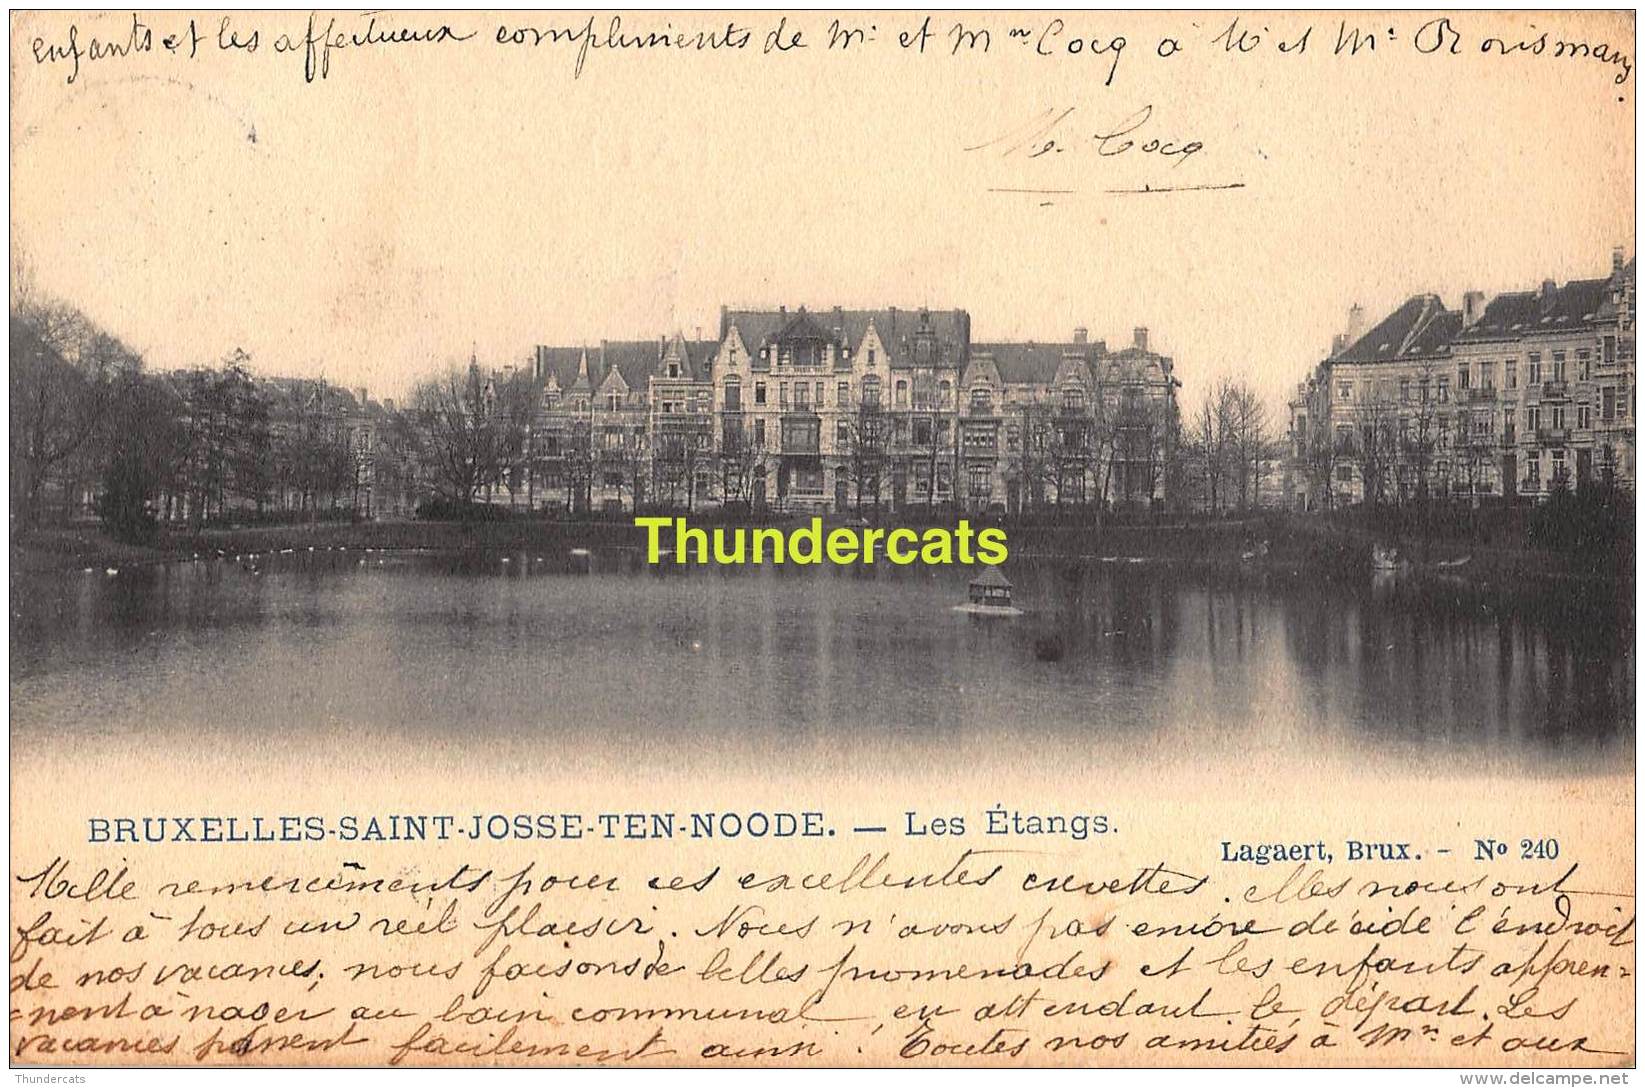 enfants et les affectueux compliments de Mr et Mme Cocq à Mr et Me
M. Cocq
Thundercats
BRUXELLES-SAINT-JOSSE-TEN-NOODE. — Les Étangs.
Lagaert, Brux. - No 240
Mille remerciements pour ces excellentes crevettes. elles nous ont
fait à tous un réel plaisir. Nous n'avons pas encore décidé l'endroit
de nos vacances; nous faisons de belles promenades et les enfants appren=
=nent à nager au bain communal, en attendant le départ. Les
vacances passent facilement ainsi. Toutes nos amitiés à Mme et aux
Thundercats
www.delcampe.net